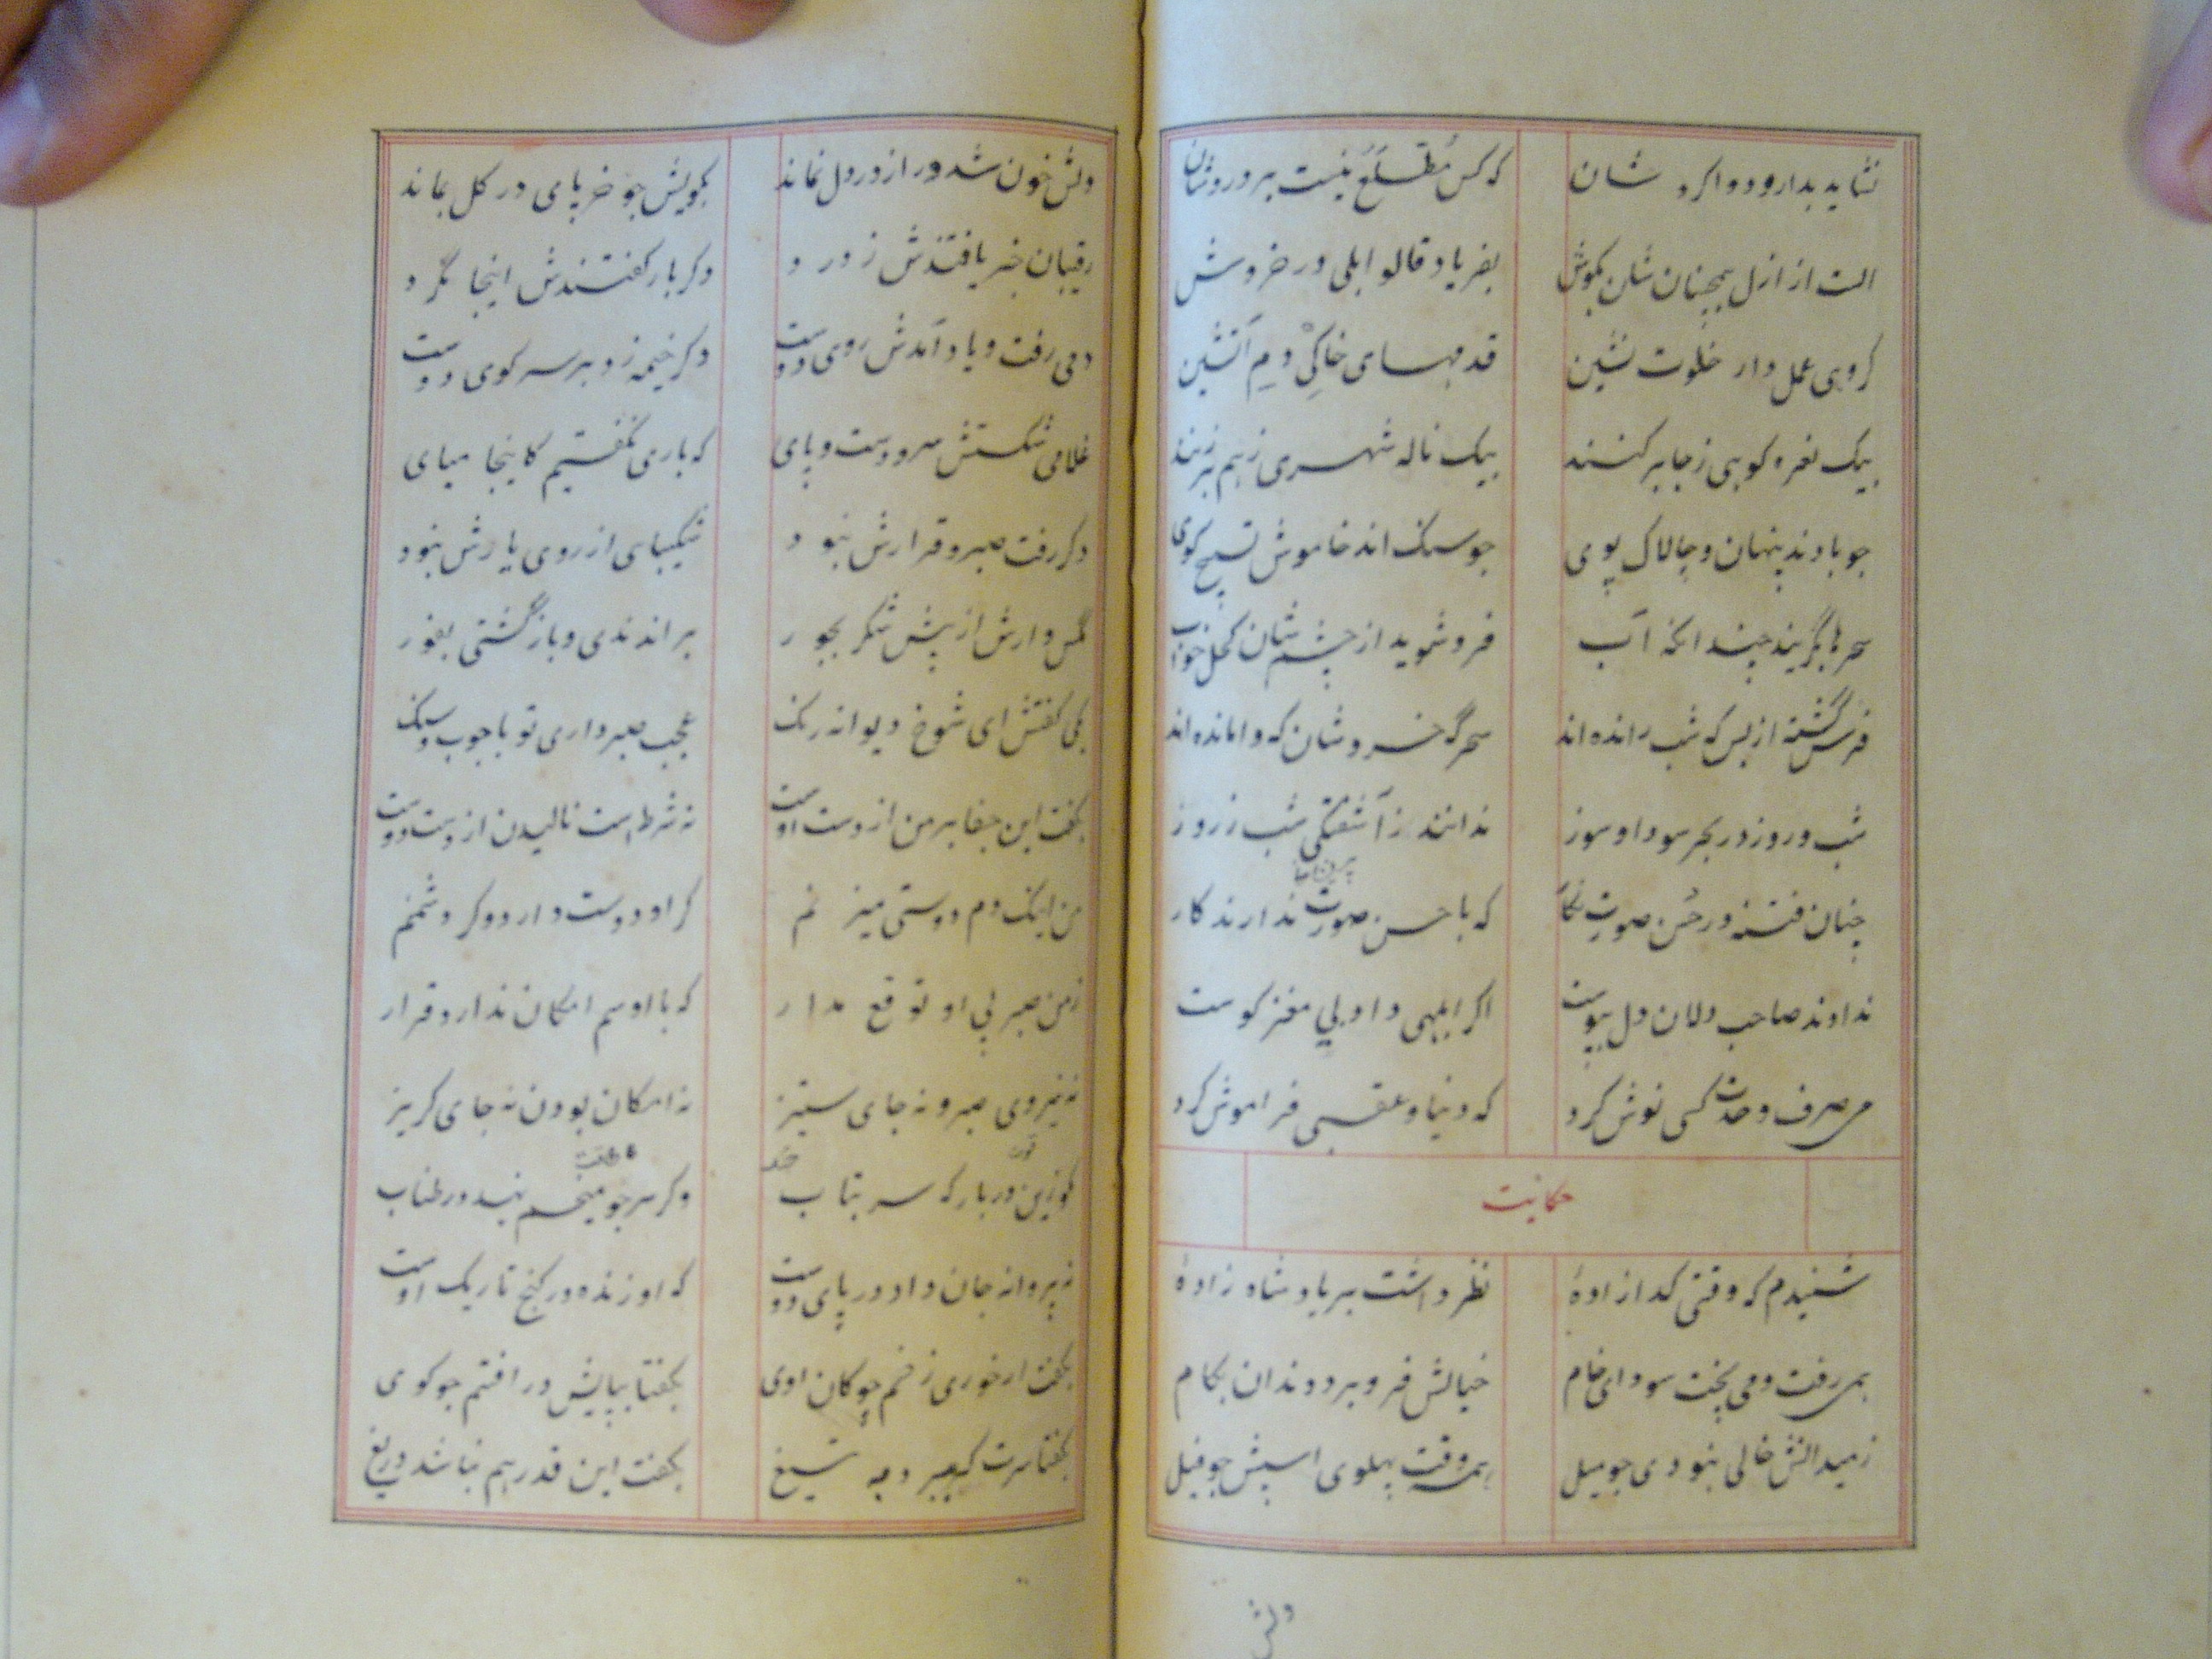 نشاید بدارو دوا کرد شان که کس مُطَّلَع نیست بر درد شان
الست از ازل همچنان شان بکوش بفریاد قالوا بلی در خروش
کروهی عمل دار خلوت نشین قدمهای خاکی دم آتشین
بیک نعره کوهی ز جا بر کنند بیک ناله شهری بهم بر زنند
جو بادند پنهان و چالاک پوی جو سنک اند خاموش تسبیح کوی
سحرها بگریند چندانکه آب فرو شوید از چشم شان کحل خواب
فرس گشته از بس که شب رانده اند سحرگه خروشان که وامانده اند
شب و روز در بحر سودا و سوز ندانند ز آشفتگی شب ز روز
چنان فتنه در حُسن صورت نکار که با حسن صورت ندارند کار
ندادند صاحب دلان دل بپوست اگر ابلهی داد بی مغز کوست
می صرف وحدت کسی نوش کرد که دنیا و عقبی فراموش کرد
حکایت
شنیدم که وقتی کدا زادهٔ نظر داشت بر پادشاه زادهٔ
همی رفت و می پخت سودای خام خیالش فرو برد دندان بکام
ز میدانش خالی نبودی جو میل همه وقت پهلوی اسپش جو فیل
دلش
دلش خون شد و راز در دل نماند بکویش جو خر پای در کل بماند
رقیبان خبر یافتندش ز درد دکر بار کفتندش اینجا مگرد
دمی رفت و یاد آمدش روی دوست دکر خیمه زد بر سر کوی دوست
غلامی شکستش سر و دست و پای که باری نکفتیم کاینجا میای
دکر رفت صبر و قرارش نبود شکیبای از روی یارش نبود
مگس وارش از پیش شکر بجور براندندی و باز گشتی بفور
یکی کفتش ای شوخ دیوانه رنک عجب صبر داری تو با جوب و سنک
بکفت این جفا بر من از دست اوست نه شرط است نالیدن از دست دوست
من اینک دم دوستی میزنم کر او دوست دارد و کر دشمنم
ز من صبر بی او توقع مدار که با او هم امکان ندارد قرار
نه نیروی صبر و نه جای ستیز نه امکان بودن نه جای کریز
مکو زین در بارکه سر بتاب وکر سر جو میخم نهد در طناب
نه پروانه جان داد در پای دوست که او زنده در کنج تاریک اوست
بکفت ار خوری زخم چوکان اوی بکفتا بپایش در افتم جو کوی
بکفتا سرت کر ببرد به تیغ بکفت این قدر هم نباشد دریغ